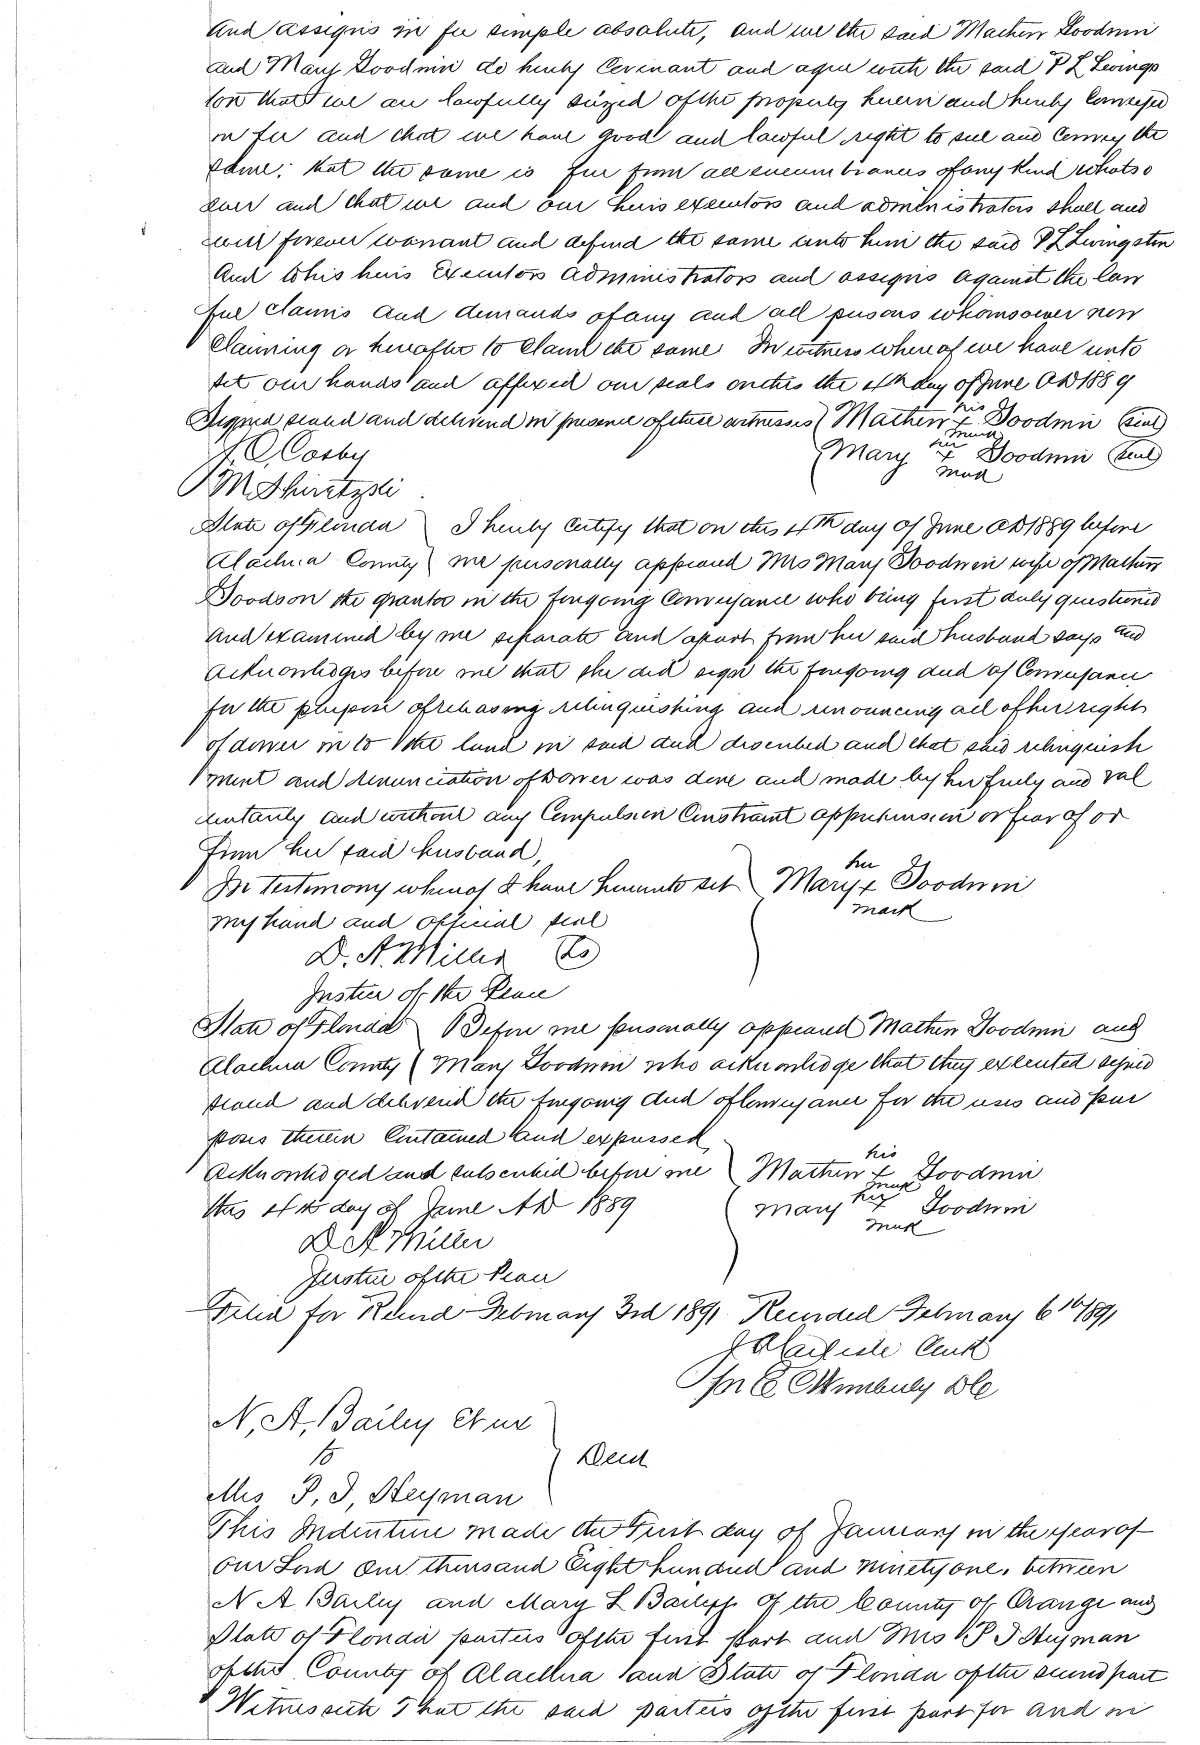 And assigns in fee simple absolute, and we the said Mathew Goodwin
and Mary Goodwin do hereby Covenant and agree with the said P L Livings
ton that we are lawfully seized of the property herein and hereby Conveyed
in fee and that we have good and lawful right to sell and Convey the
same; that the same is free from all encumbrances of any Kind whatso
ever and that we and our heirs executors and administrators shall and
will forever warrant and defend the same unto him the said P L Livingston
And to his heirs Executors administrators and assigns against the law
ful claims and demands of any and all persons whomsoever now
Claiming or hereafter to Claim the same In witness whereof we have unto
set our hands and affixed our seals on this the 4th day of June AD 1889
Signed sealed and delivered in presence of these witnesses ( Mathew his x mark Goodwin (seal)
J. C. Cosby ( Mary her x mark Goodwin (seal)
M Shiretzski
State of Florida ) I hereby Certify that on this 4th day of June AD 1889 before
Alachua County ( me personally appeared Mrs Mary Goodwin wife of Mathew
Goodson the grantor in the foregoing Conveyance who being first duly questioned
and examined by me separate and apart from her said husband says and
acknowledges before me that she did sign the foregoing deed of Conveyance
for the purpose of releasing relinquishing and renouncing all of her right
of dower in to the land in said deed described and that said relinquish
ment and renunciation of Dower was done and made by her freely and vol
untarily and without any Compulsion Constraint apprehension or fear of or
from her said husband,
In Testimony whereof I have hereunto set ) Mary her x mark Goodwin
my hand and official seal
D. A. Miller (LS)
Justice of the Peace
State of Florida ) Before me personally appeared Mathew Goodwin and
Alachua County ( Mary Goodwin who acknowledge that they executed signed
sealed and delivered the foregoing deed of Conveyance for the uses and pur
poses therein Contained and expressed
Acknowledged and subscribed before me ) Mathew his x mark Goodwin
this 4th day of June AD 1889 ( Mary her x mark Goodwin
D A Miller
Justice of the Peace
Filed for Record February 3rd 1891 Recorded February 6th 1891
J A Carlisle Clerk
Per E C Wimberly DC
N, A, Bailey et ux
to ) Deed
Mrs P, I, Heyman
This Indenture made the First day of January in the year of
our Lord One thousand Eight hundred and ninety one, between
N A Bailey and Mary L Bailey of the County of Orange and
State of Florida parties of the first part and Mrs P I Heyman
of the County of Alachua and State of Florida of the second part
Witnesseth That the said parties of the first part for and in